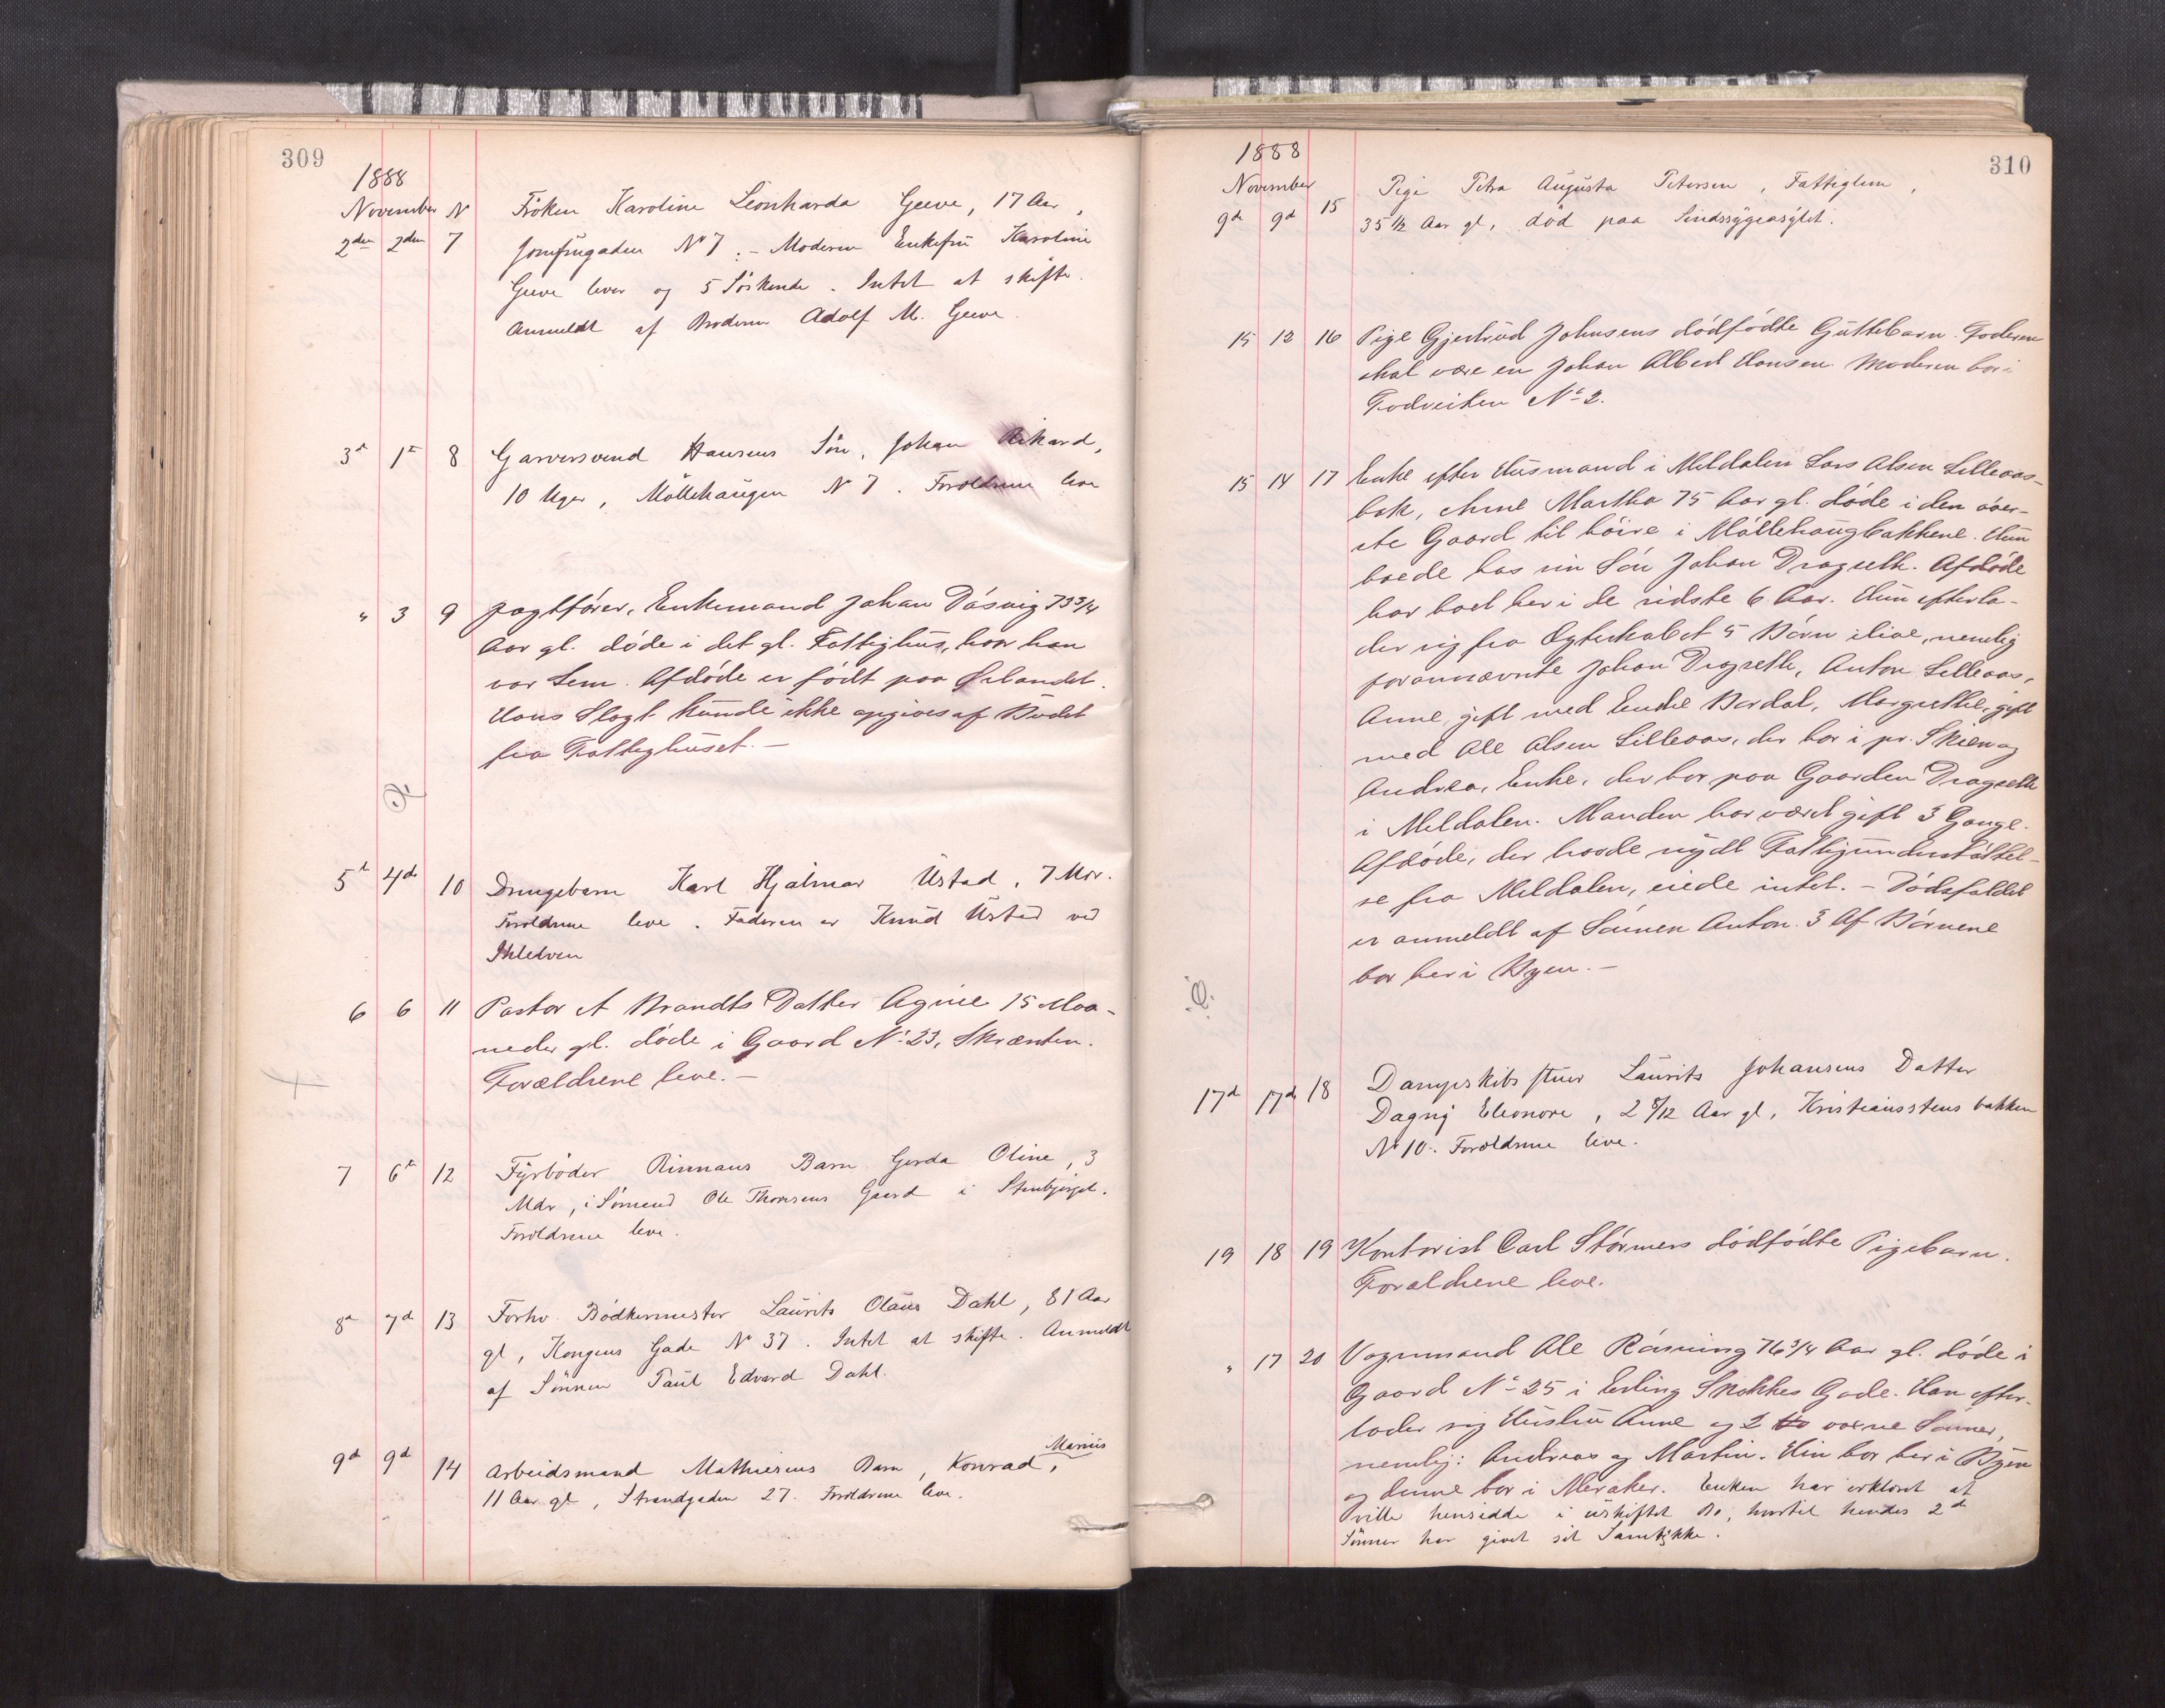 309
1888
November N Fröken Karoline Leonharda Geeve, 17 Aar,
2den 2den 7 Jomfrugaden No 7. – Moderen Enkefru Karoline
Geeve lever og 5 Söskende. Intet at skifte.
Anmeldt af Broderen Adolf M. Geeve.
3d 1st 8 Garversvend Hansens Sön, Johan Rikard,
10 Uger, Möllehaugen N 7. Forældrene leve
" 3 9 Jagtfører, Enkemand Johan Døsvig 73 3/4
Aar gl. døde i det gl. Fattighus, hvor han
var Lem. Afdøde er født paa Ørlandet.
Hans Slægt kunde ikke opgives af Budet
fra Fattighuset. –
5t 4de 10 Drengebarn Karl Hjalmar Ustad, 7 Mdr.
Forældrene leve. Faderen er Knud Ustad ved
Ihleelven
6 6 11 Pastor A Brandts Datter Agine 15 Maa-
neder gl. døde i Gaard No 23, Skrænten.
Forældrene leve. –
7 6te 12 Fyrböder Rinnans Barn Gerda Oline, 3
Mdr, i Sömand Ole Thomsens Gaard i Stenbjerget.
Forældrene leve.
8d 7d 13 Forhv. Bödkermester Laurits Olaus Dahl, 81 Aar
gl, Kongens Gade No 37. Intet at skifte. Anmeldt
af Sönnen Paul Edvard Dahl.
9d 9d 14 Arbeidsmand Mathisens Barn, Konrad Marius,
11 Aar gl, Strandgaden 27. Forældrene leve.
310
1888
November Pige Petra Augusta Petersen, Fattiglem,
9de 9d 15 35 1/2 Aar gl, död paa Sindssygeasylet.
15 13 16 Pige Gjertrud Johnsens dødfødte Guttebarn. Faderen
skal være en Johan Albert Hansen. Moderen bor i
Fodveiten No 2.
15 14 17 Enke efter Husmand i Meldalen Lars Olsen Lilleaas-
bak, Anne Martha 75 Aar gl. døde i den øver-
ste Gaard til høire i Møllehaugbakkene. Hun
boede hos sin Søn Johan Dragseth. Afdøde
har boet her i de sidste 6 Aar. Hun efterla-
der sig fra Ægteskabet 5 Børn ilive, nemlig
forannævnte Johan Dragseth, Anton Lilleaas,
Anne, gift med Endre Bardal, Margrethe, gift
med Ole Olsen Lilleaas, der bor i pr. Skien og
Andrea, Enke, der bor paa Gaarden Dragseth
i Meldalen. Manden har været gift 3 Gange.
Afdøde, der havde nydt Fattigunderstøttel-
se fra Meldalen, eiede intet. – Dødsfaldet
er anmeldt af Sønnen Anton. 3 Af Børnene
bor her i Byen. –
17de 17de 18 Dampskibsfører Laurits Johansens Datter
Dagny Eleonore, 2 8/12 Aar gl, Kristianstens bakken
No 10. Forældrene leve.
19 18 19 Kontorist Carl Størmers dødfødte Pigebarn.
Forældrene leve.
" 17 20 Vognmand Ole Røsning 76 3/4 Aar gl. døde i
Gaard No 25 i Erling Skakkes Gade. Han efter-
lader sig Hustru Anne og 2 voxne Sønner,
nemlig: Andreas og Martin. Hin bor her i Byen
og denne bor i Meraker. Enken har erklæret at
ville hensidde i uskiftet Bo, hvortil hendes 2de
Sönner har givet sit Samtykke.